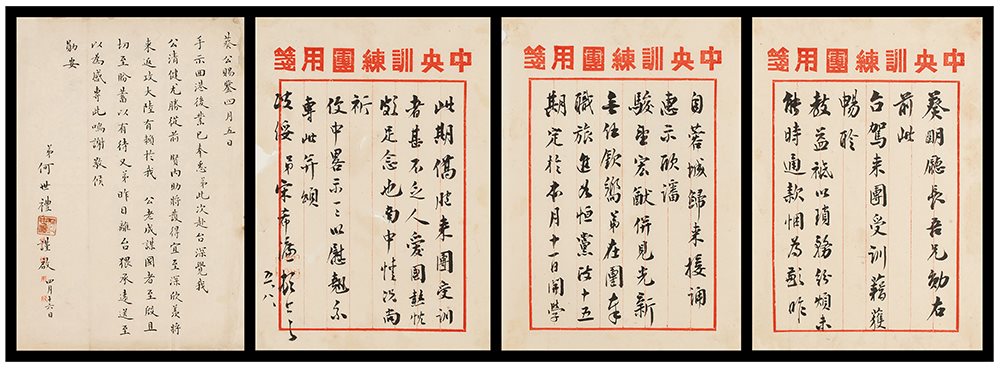 中央訓練團用箋
葵明廳長吾兄勛右
前此
台駕來團受訓藉獲
暢聆
教益祗以瑣務紛煩未
能時通款悃為歉昨
中央訓練團用箋
自蓉城歸來接誦
惠示欣審
宏猷併見光新
無任欽嚮弟在團奉
職旅進如恒黨政十五
期定於本月十一日開學
中央訓練團用箋
此期儁能來團受訓
者甚不乏人愛國熱忱
頗足念也尚中情況尚
祈
便中畧示一二以慰翹企
專此并頌
政綏弟宋希濂頓上
五八
葵公賜鑒四月五日
手示回港後業已奉悉弟此次赴台深覺我
公清健尤勝從前賢內助將護得宜至深欣羨將
來返攻大陸有賴於我公老成謀國者至殷且
切至盼蓄以有待又弟昨日離台猥承遠送至
以為感專此鳴謝敬候
勛安
弟何世禮謹啟四月十六日